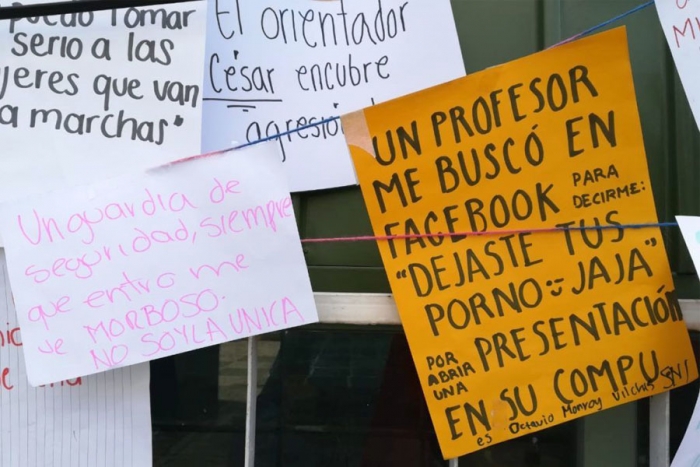 puedo tomar
serio a las
jeres que van
a marchas"
El orientador
César encubre
agresio
Un guardia de
seguridad, siempre
que entro me
ve MORBOSO.
NO SOY LA UNICA
UN PROFESOR
ME BUSCÓ EN
FACEBOOK PARA DECIRME:
"DEJASTE TUS
PORNO JAJA"
POR ABRIR UNA PRESENTACIÓN
EN SU COMPU
es Octavio Monroy Vilchis SNI